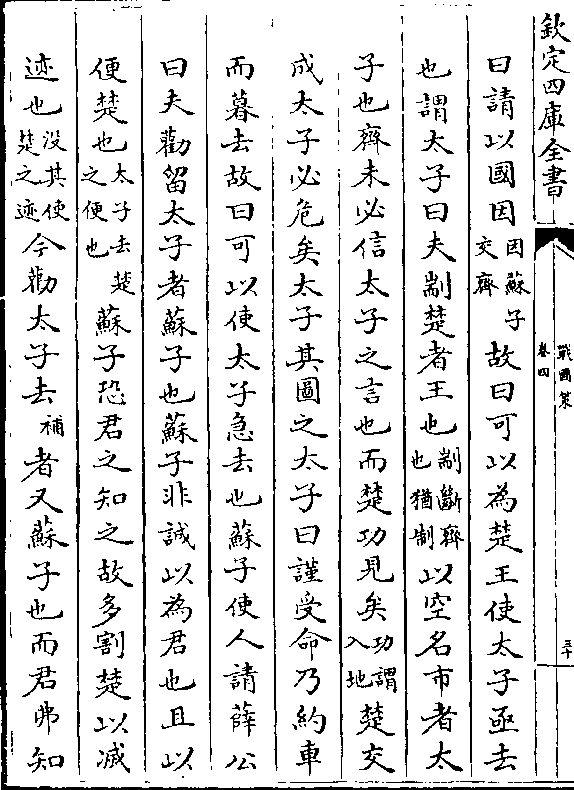 欽定四庫全書
戰國策
卷四
三十
曰請以國因因蘇子交齊故曰可以為楚王使太子亟去
也謂太子曰夫剬楚者王也剬斷齊也猶制以空名市者太
子也齊未必信太子之言也而楚功見矣功謂入地楚交
成太子必危矣太子其圖之太子曰謹受命乃約車
而暮去故曰可以使太子急去也蘇子使人請薛公
曰夫勸留太子者蘇子也蘇子非誠以為君也且以
便楚也太子去楚之便也蘇子恐君之知之故多割楚以滅
迹也没其使楚之迹今勸太子去補者又蘇子也而君弗知